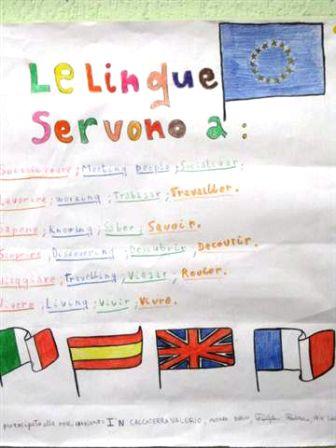 Le Lingue
Servono a:
Socializzare; Meeting people; Socializar.
Lavorare; working; Trabajar; Travailler.
Sapere; Knowing; Saber; Savoir.
Scoprire; Discovering; Descubrir; Decouvrir.
Viaggiare; Travelling; Viajar; Rouler.
Vivere; Living; Vivir; Vivre.
IN CACCATERRA VALERIO,